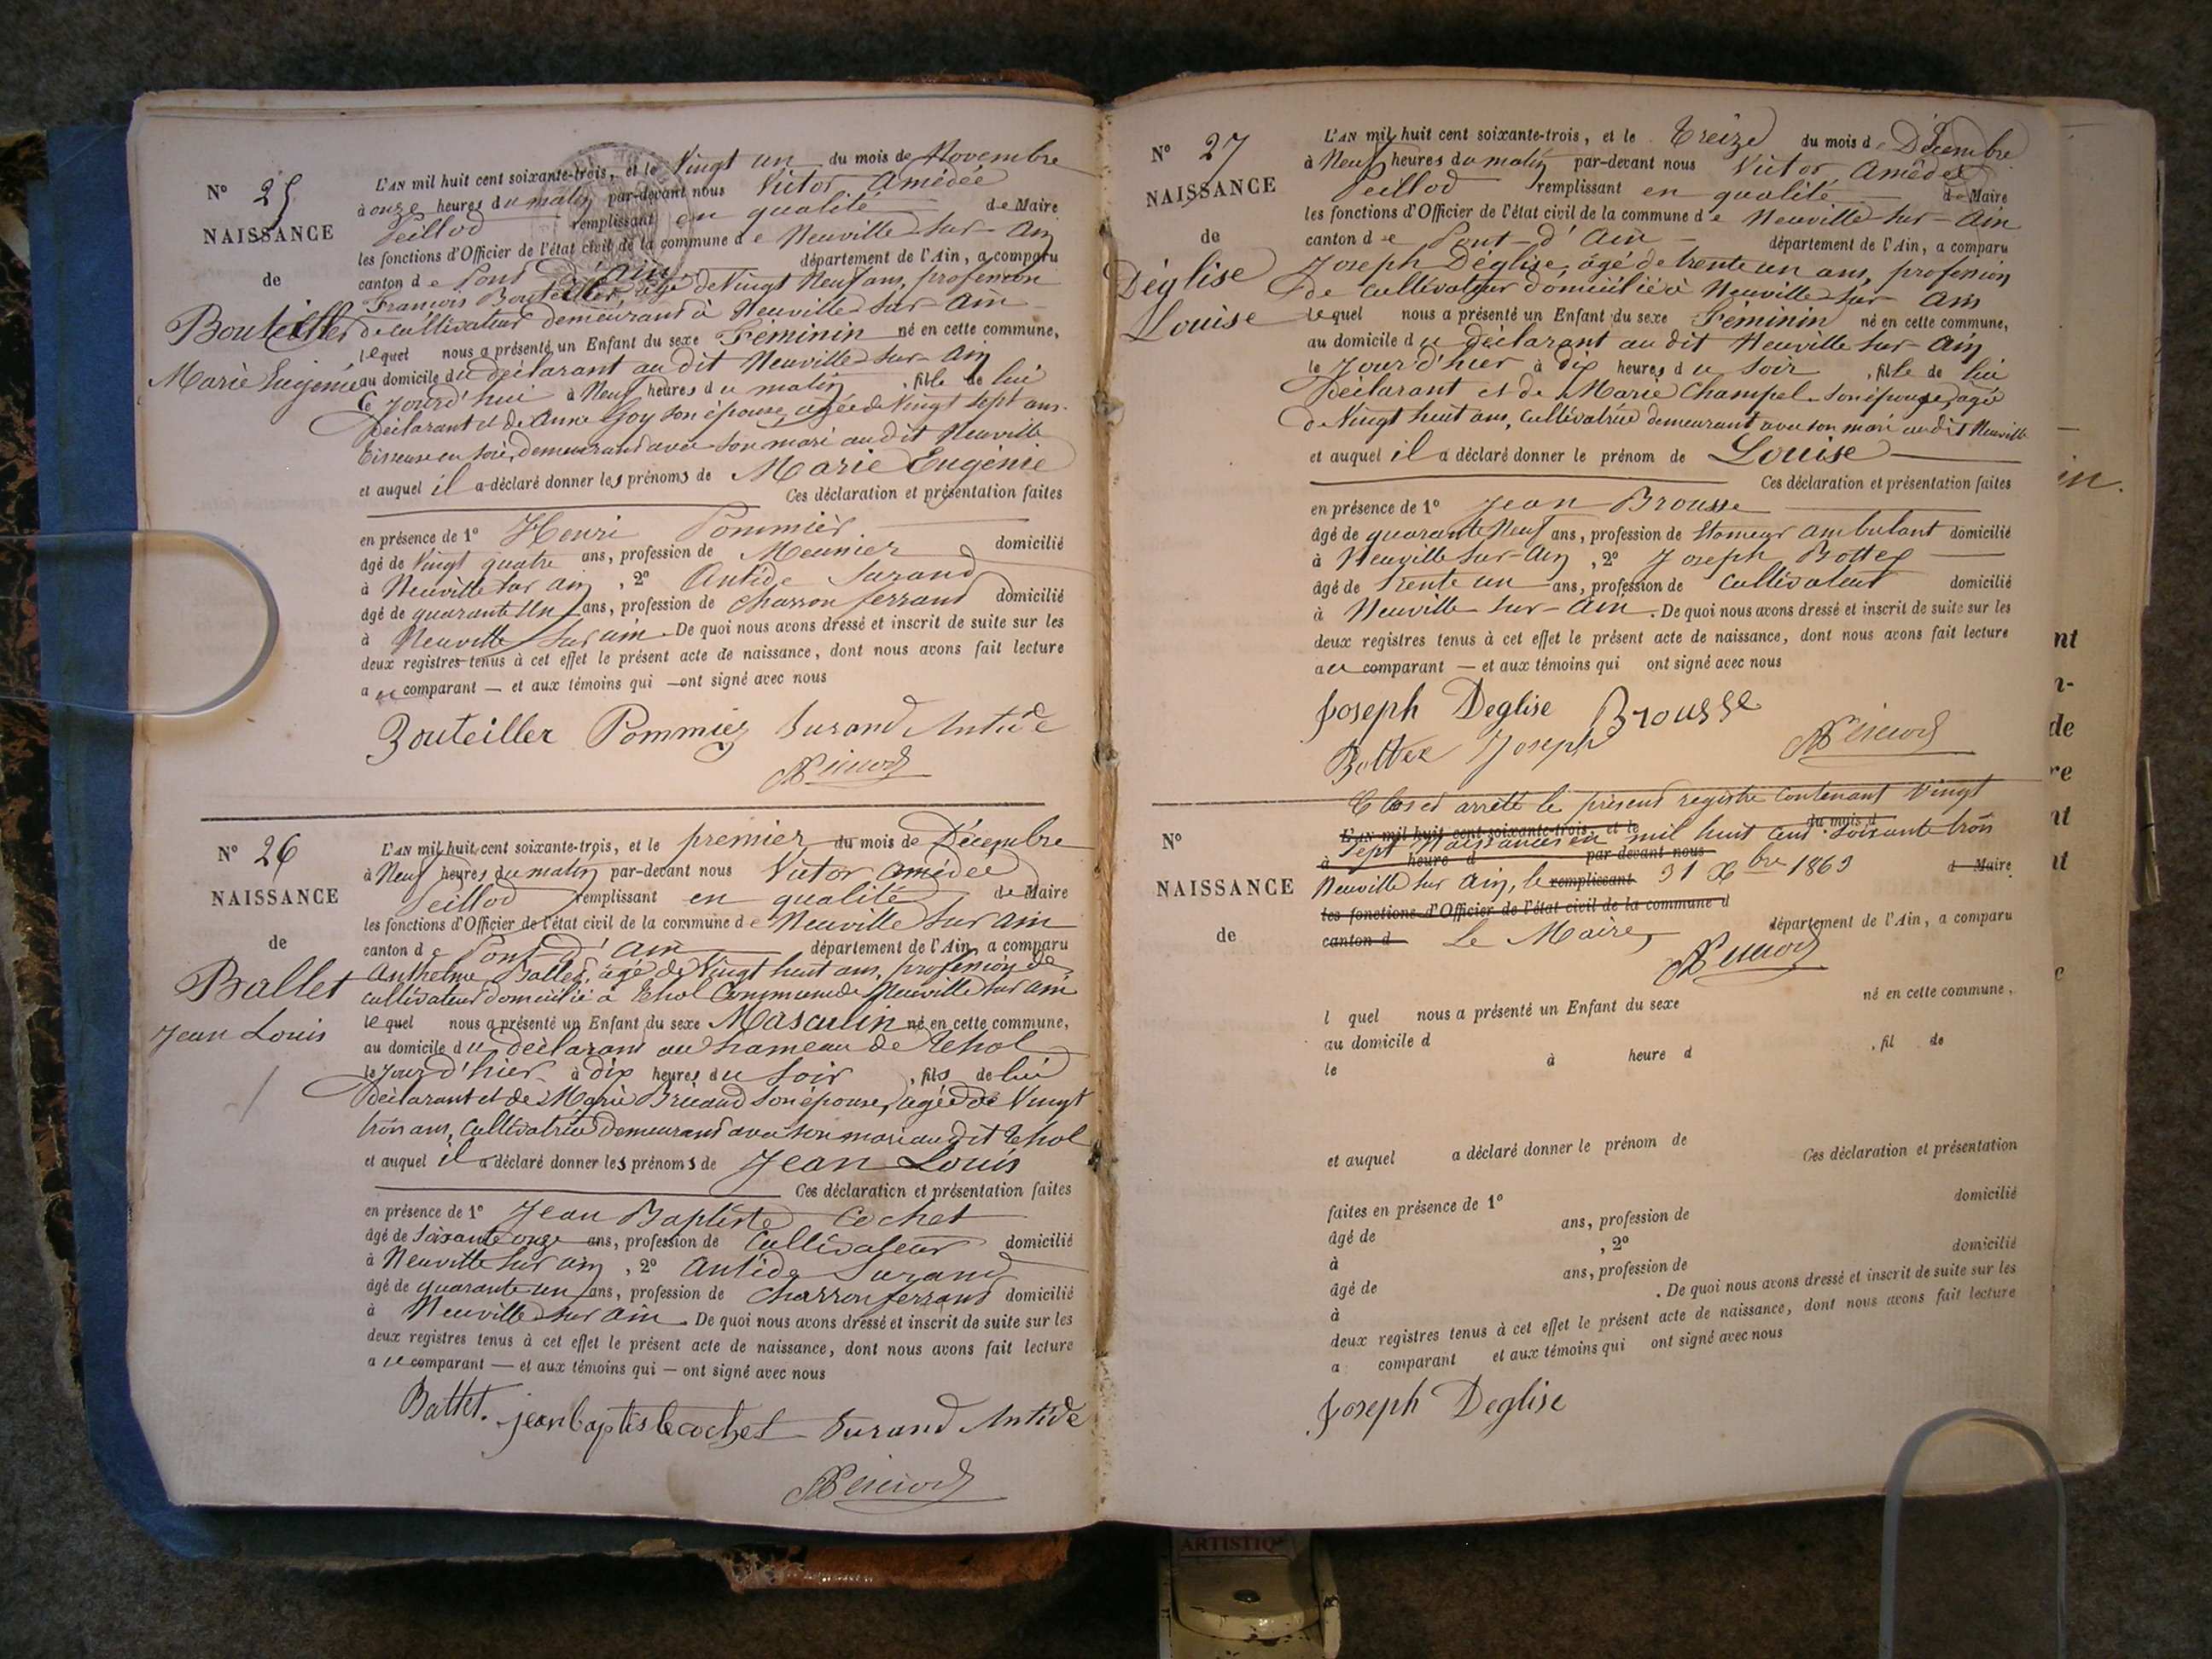 N° 25
NAISSANCE
de
Bouteiller
Marie Eugénie
L'AN mil huit cent soixante-trois, et le Vingt un du mois de Novembre
à onze heures du matin par-devant nous Victor Amédée
Peillod remplissant en qualité de Maire
les fonctions d'Officier de l'état civil de la commune de Neuville sur Ain
canton de Pont d'Ain département de l'Ain, a comparu
François Bouteiller, âgé de Vingt Neuf ans, profession
de cultivateur demeurant à Neuville sur Ain
lequel nous a présenté un Enfant du sexe Féminin né en cette commune,
au domicile du déclarant au dit Neuville sur Ain
ce jourd'hui à Neuf heures du matin, fille de lui
Déclarant et de Anne Goy son épouse, agée de Vingt sept ans
tisseuse en soie, demeurant avec son mari audit Neuville
et auquel il a déclaré donner les prénoms de Marie Eugénie
Ces déclaration et présentation faites
en présence de 1° Henri Pommier
âgé de Vingt quatre ans, profession de Meunier domicilié
à Neuville sur Ain, 2° Antide Durand
âgé de quarante Un ans, profession de charron ferrand domicilié
à Neuville sur ain. De quoi nous avons dressé et inscrit de suite sur les
deux registres tenus à cet effet le présent acte de naissance, dont nous avons fait lecture
au comparant — et aux témoins qui — ont signé avec nous
Bouteiller Pommier Durand Antide
N° 26
NAISSANCE
de
Ballet
Jean Louis
L'AN mil huit cent soixante-trois, et le premier du mois de Décembre
à Neuf heures du matin par-devant nous Victor Amédée
Peillod remplissant en qualité de Maire
les fonctions d'Officier de l'état civil de la commune de Neuville sur ain
canton de Pont d'Ain département de l'Ain, a comparu
Anthelme Ballet, âgé de Vingt huit ans, profession de
cultivateur domicilié à Thol Commune de Neuville sur ain
lequel nous a présenté un Enfant du sexe Masculin né en cette commune,
au domicile du déclarant au hameau de Thol
le jour d'hier à dix heures du soir, fils de lui
déclarant et de Marie Bricaud son épouse, agée de Vingt
trois ans, Cultivatrice demeurant avec son mari au dit Thol
et auquel il a déclaré donner les prénoms de Jean Louis
Ces déclaration et présentation faites
en présence de 1° Jean Baptiste Cochet
âgé de Soixante onze ans, profession de Cultivateur domicilié
à Neuville sur ain, 2° Antide Durand
âgé de quarante un ans, profession de Charron ferrand domicilié
à Neuville sur Ain. De quoi nous avons dressé et inscrit de suite sur les
deux registres tenus à cet effet le présent acte de naissance, dont nous avons fait lecture
au comparant — et aux témoins qui — ont signé avec nous
Ballet. jean baptiste cochet Durand Antide
N° 27
NAISSANCE
de
Déglise
Louise
L'AN mil huit cent soixante-trois, et le Treize du mois de Décembre
à Neuf heures du matin par-devant nous Victor Amédée
Peillod remplissant en qualité de Maire
les fonctions d'Officier de l'état civil de la commune de Neuville sur Ain
canton de Pont-d'Ain département de l'Ain, a comparu
Joseph Déglise, âgé de trente un ans, profession
de cultivateur domicilié à Neuville sur Ain
lequel nous a présenté un Enfant du sexe Féminin né en cette commune,
au domicile du déclarant au dit Neuville sur Ain
le jour d'hier à dix heures du soir, fille de lui
Déclarant et de Marie Champel son épouse, agée
de Vingt huit ans, cultivatrice demeurant avec son mari au dit Neuville
et auquel il a déclaré donner le prénom de Louise
Ces déclaration et présentation faites
en présence de 1° Jean Brousse
âgé de quarante Neuf ans, profession de Etameur ambulant domicilié
à Neuville sur Ain, 2° Joseph Bottex
âgé de Trente un ans, profession de Cultivateur domicilié
à Neuville sur Ain. De quoi nous avons dressé et inscrit de suite sur les
deux registres tenus à cet effet le présent acte de naissance, dont nous avons fait lecture
au comparant — et aux témoins qui ont signé avec nous
Joseph Deglise Brousse
Bottex Joseph
N°
NAISSANCE
de
Clos et arrêté le présent registre contenant Vingt
L'AN mil huit cent soixante-trois, et le du mois d
Sept Naissances en mil huit cent soixante trois
à heure d par-devant nous
Neuville sur Ain, le remplissant 31 Xbre 1863 d Maire
les fonctions d'Officier de l'état civil de la commune d
canton d Le Maire, département de l'Ain, a comparu
l quel nous a présenté un Enfant du sexe né en cette commune,
au domicile d
le à heure d , fil de
et auquel a déclaré donner le prénom de Ces déclaration et présentation
faites en présence de 1° domicilié
âgé de ans, profession de
à , 2° domicilié
âgé de ans, profession de
à . De quoi nous avons dressé et inscrit de suite sur les
deux registres tenus à cet effet le présent acte de naissance, dont nous avons fait lecture
a comparant et aux témoins qui ont signé avec nous
Joseph Deglise
in.
nt
n-
de
re
nt
nt
ARTISTIQ